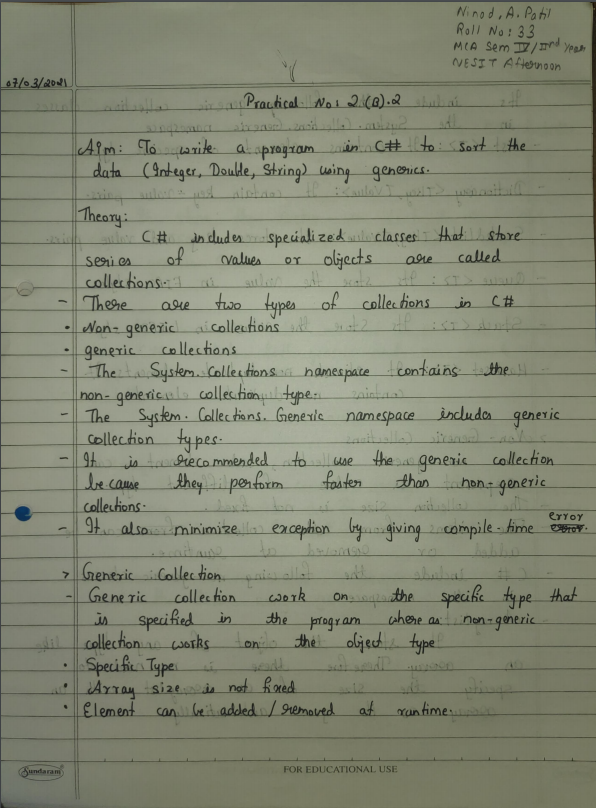 Ninad.A.Patil
Roll No: 33
MCA Sem IV/IInd Year
NESIT Afternoon
07/03/2021
Practical No: 2 (B).2
Aim: To write a program in C# to sort the
data (Integer, Double, String) using generics.
Theory:
C# includes specialized classes that store
series of values or objects are called
collections.
- There are two types of collections in C#
• Non-generic collections
• generic collections
- The System.Collections namespace contains the
non-generic collection type.
- The System.Collections.Generic namespace includes generic
collection types.
- It is recommended to use the generic collection
because they perform faster than non-generic
collections.
- It also minimize exception by giving compile-time error
> Generic Collection
- Generic collection work on the specific type that
is specified in the program where as non-generic
collection works on the object type
• Specific Type
• Array size is not fixed
• Element can be added / removed at runtime.
Sundaram
FOR EDUCATIONAL USE